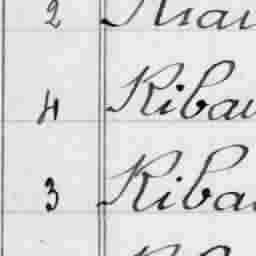 2
4 Ribau
3 Riba